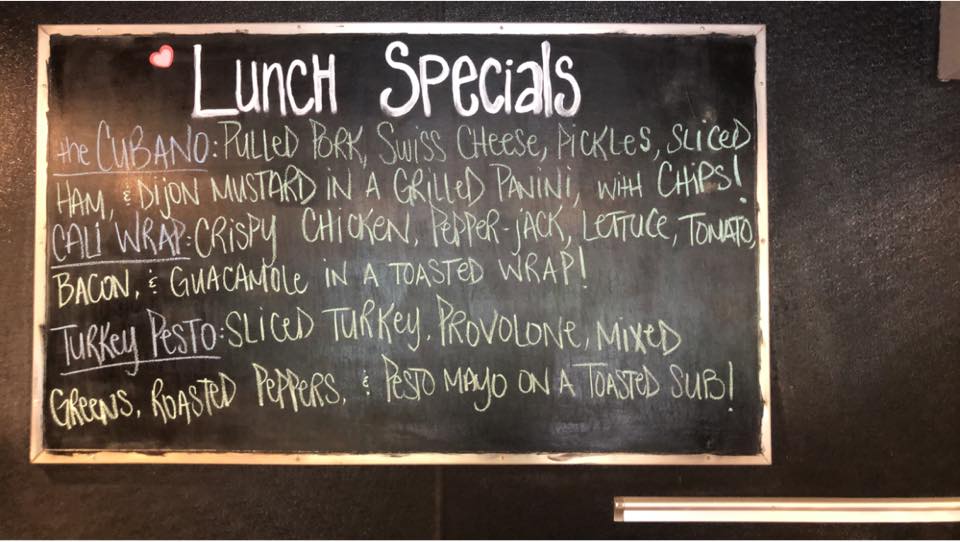 Lunch Specials
the CUBANO: PULLED PORK, SWISS CHEESE, PICKLES, SLICED
HAM, & DIJON MUSTARD IN A GRILLED PANINI, WITH CHIPS!
CALI WRAP: CRISPY CHICKEN, PEPPER-JACK, LETTUCE, TOMATO,
BACON, & GUACAMOLE IN A TOASTED WRAP!
TURKEY PESTO: SLICED TURKEY, PROVOLONE, MIXED
GREENS, ROASTED PEPPERS, & PESTO MAYO ON A TOASTED SUB!